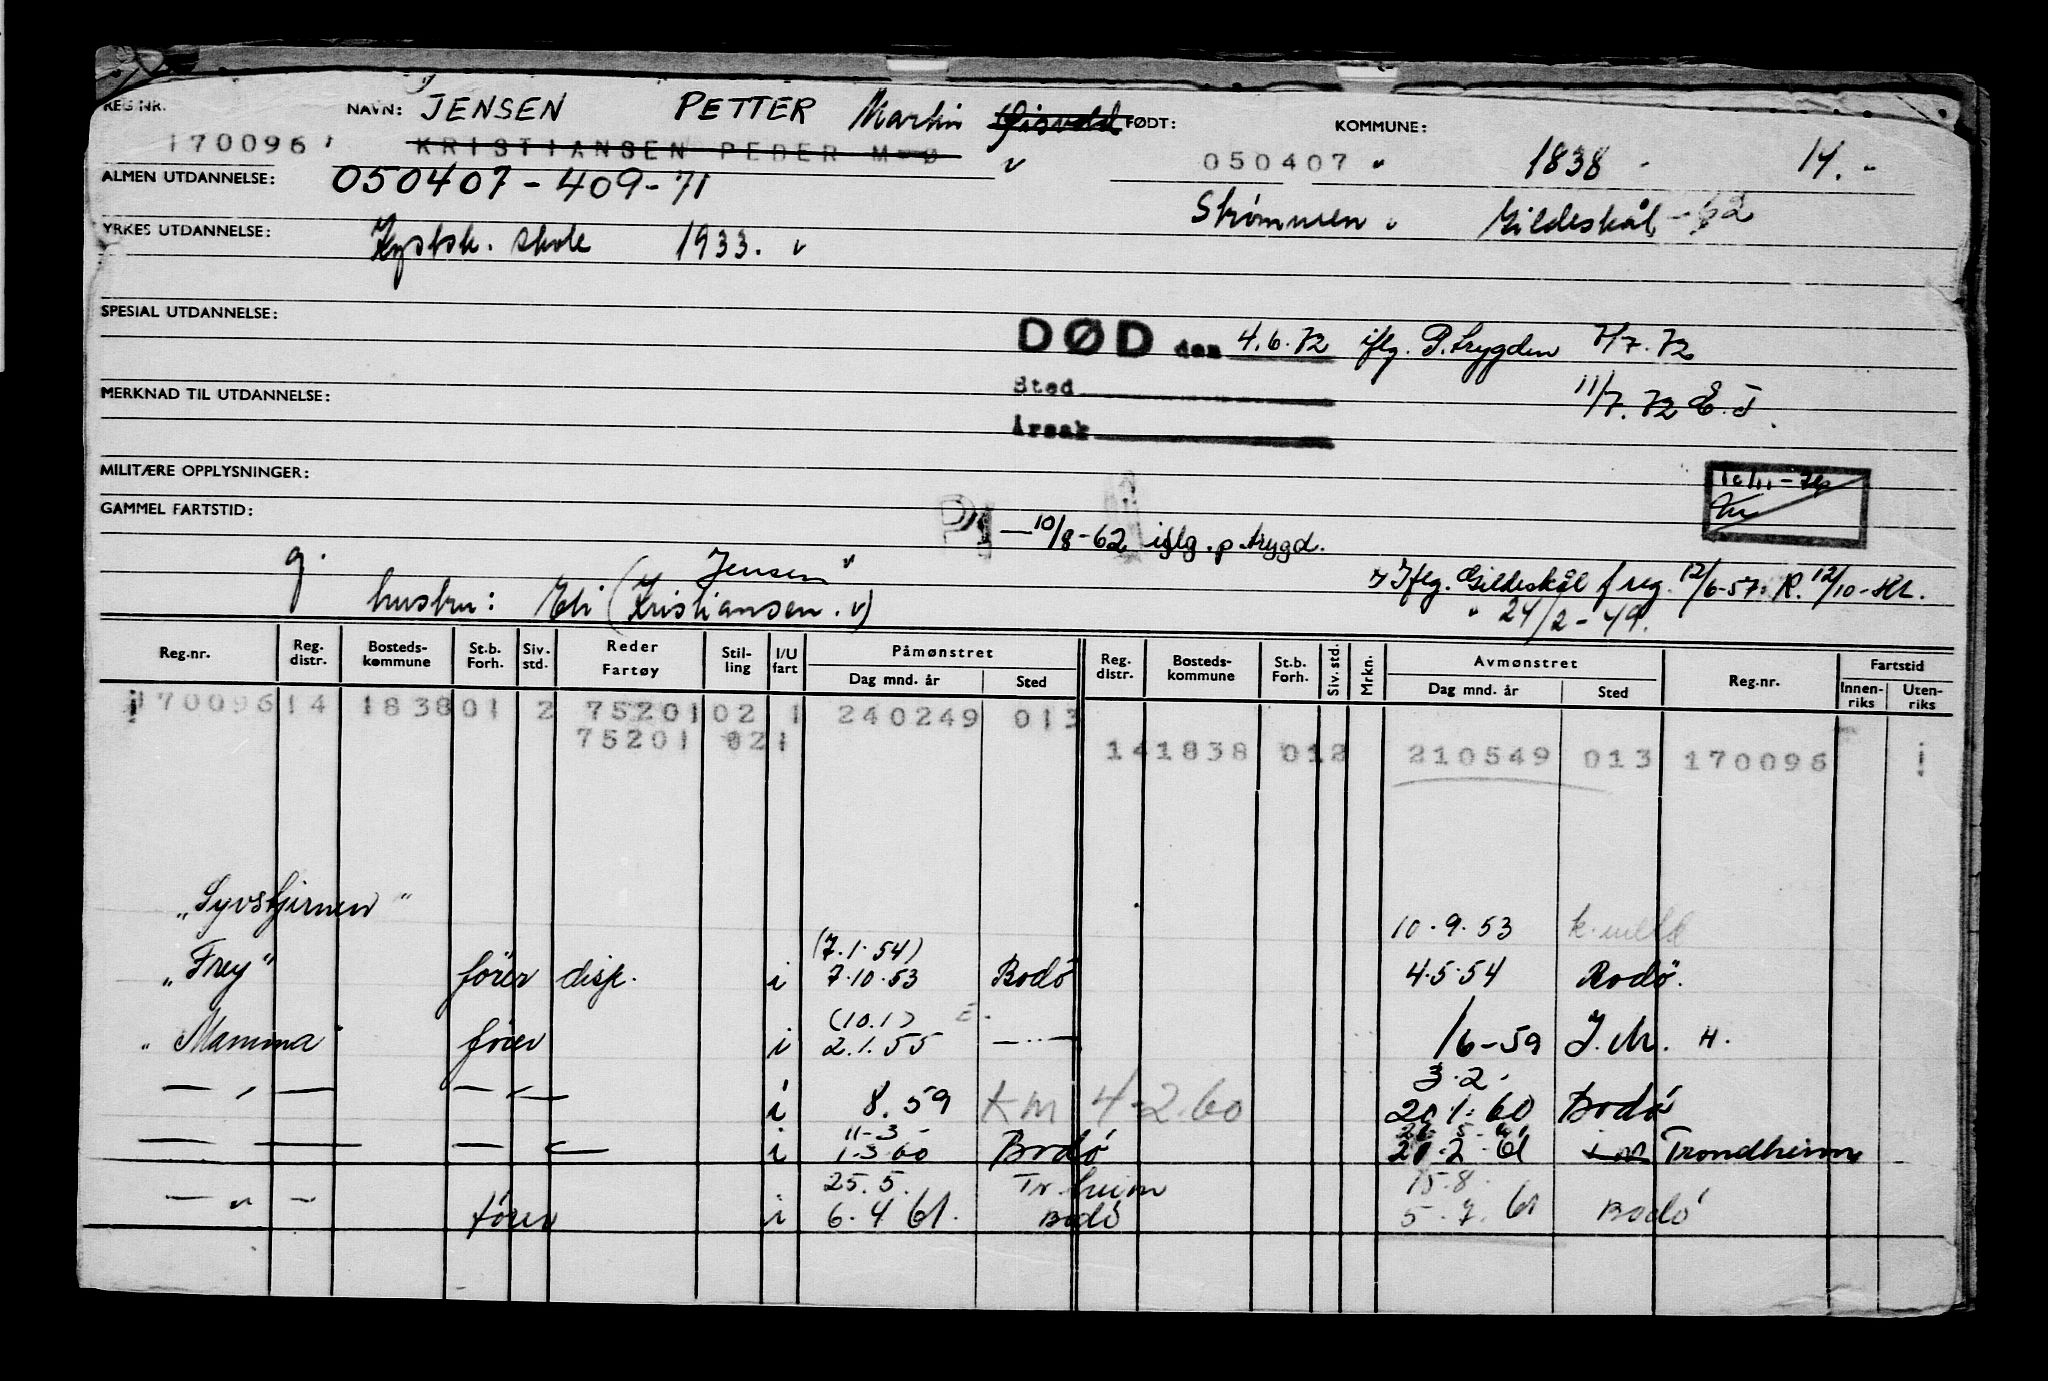 REG.NR. NAVN: JENSEN PETTER Martin FØDT: KOMMUNE:
170096 KRISTIANSEN PEDER M-Ø 050407 1838 14.
ALMEN UTDANNELSE: 050407-409-71
Gildeskål -62
YRKES UTDANNELSE: Kystsk. skole 1933. v
SPESIAL UTDANNELSE:
DØD den 4.6.72 iflg. P.trygden 7/7.72
Sted
MERKNAD TIL UTDANNELSE: 11/7.72 E.J.
Årsak
MILITÆRE OPPLYSNINGER:
GAMMEL FARTSTID:
— 10/8-62 iflg. p.trygd.
g. Jensen v
Iflg. Gildeskål f reg. 12/6-57. R. 12/10-
hustru: Eli (Kristiansen. v)
" 24/2-49.
Reg.nr. Reg. distr. Bosteds-kommune St.b. Forh. Siv. std. Reder Fartøy Stil-ling I/U fart Påmønstret Dag mnd. år Sted Reg. distr. Bosteds-kommune St.b. Forh. Siv. std. Mrkn. Avmønstret Dag mnd. år Sted Reg.nr. Fartstid Innen-riks Uten-riks
170096 14 1838 01 2 75201 02 1 240249 013
75201 02 1 14 1838 01 2 210549 013 170096
"Syvstjernen" 10.9.53 k.meld
(7.1.54)
"Frey" fører disp. i 7.10.53 Bodø 4.5.54 Bodø.
(10.1)
" Mamma fører i 2.1.55 — " — 1/6-59 J.M. H.
3.2.
— " — — " — i 8.59 KM 4-2.60 20.1.60 Bodø
11-3-
— — — " — i 1-3 60 Bodø 21.2.61 Trondheim
25.5. Tr.heim 15.8.
— " — fører i 6.4 61. Bodø 5.7.61 Bodø